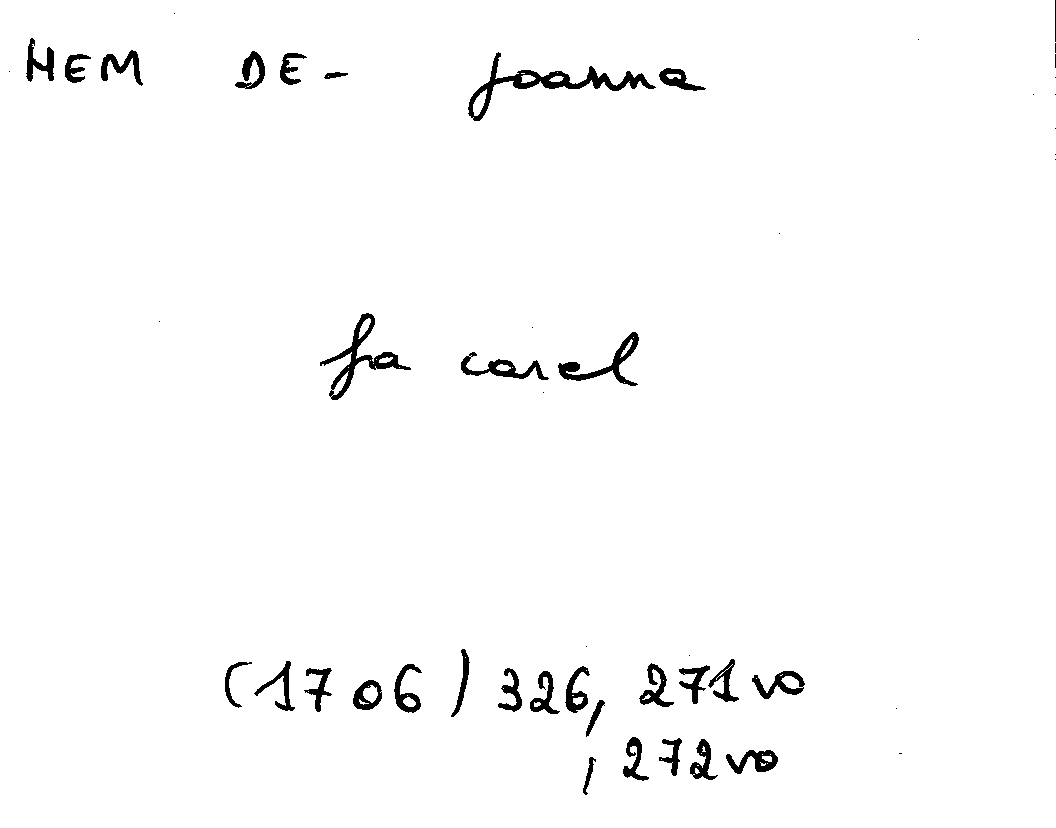 HEM DE- Joanna
fa carel
(1706) 326, 271vo
, 272vo